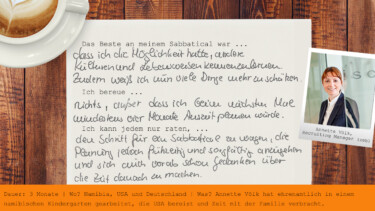 Das Beste an meinem Sabbatical war ...
dass ich die Möglichkeit hatte, andere
Kulturen und Lebensweisen kennenzulernen.
Zudem weiß ich nun viele Dinge mehr zu schätzen.
Ich bereue ...
nichts, außer dass ich beim nächsten Mal
mindestens vier Monate Auszeit planen würde.
Ich kann jedem nur raten, ...
den Schritt für ein Sabbatical zu wagen, die
Planung jedoch frühzeitig und sorgfältig anzugehen
und sich auch vorab schon Gedanken über
die Zeit danach zu machen.
Annette Völk,
Recruiting Manager
Dauer: 3 Monate | Wo? Namibia, USA und Deutschland | Was? Annette Völk hat ehrenamtlich in einem
namibischen Kindergarten gearbeitet, die USA bereist und Zeit mit der Familie verbracht.